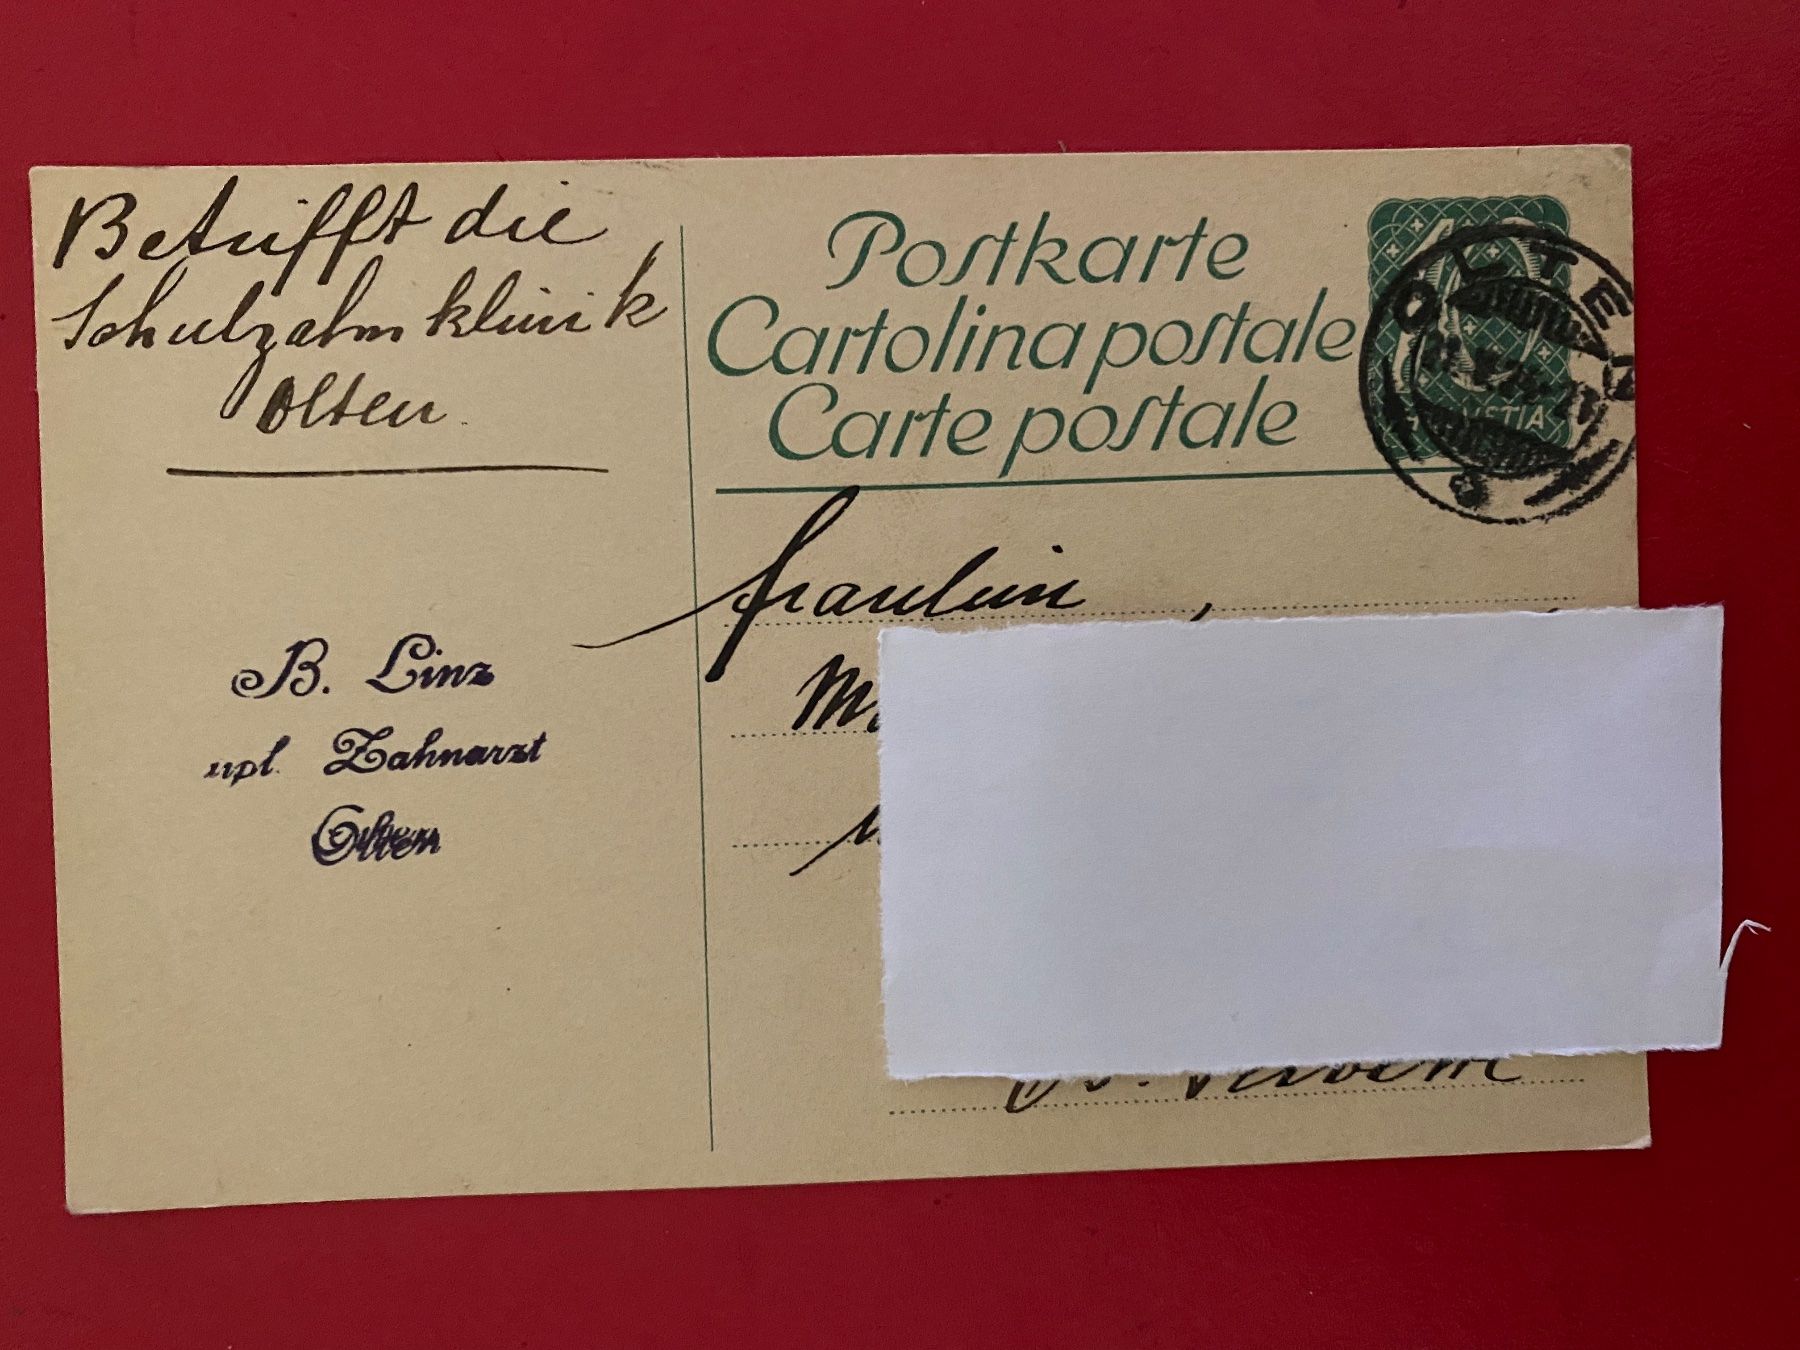 Betrifft die
Schulzahnklinik
Olten
B. Linz
Zahnarzt
Olten
Postkarte
Cartolina postale
Carte postale
OLTEN
10
HELVETIA
Fräulein